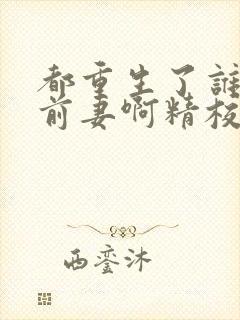 都重生了谁
前妻啊精校
西銮沐